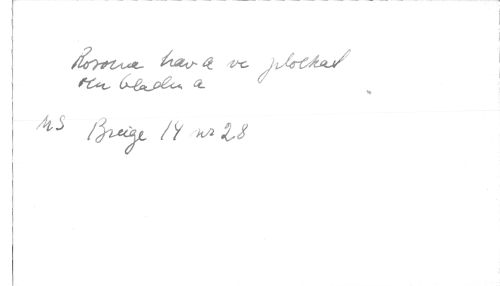 Rosorna hava vi plockat
och bladena
MS Breige 14 nr 28